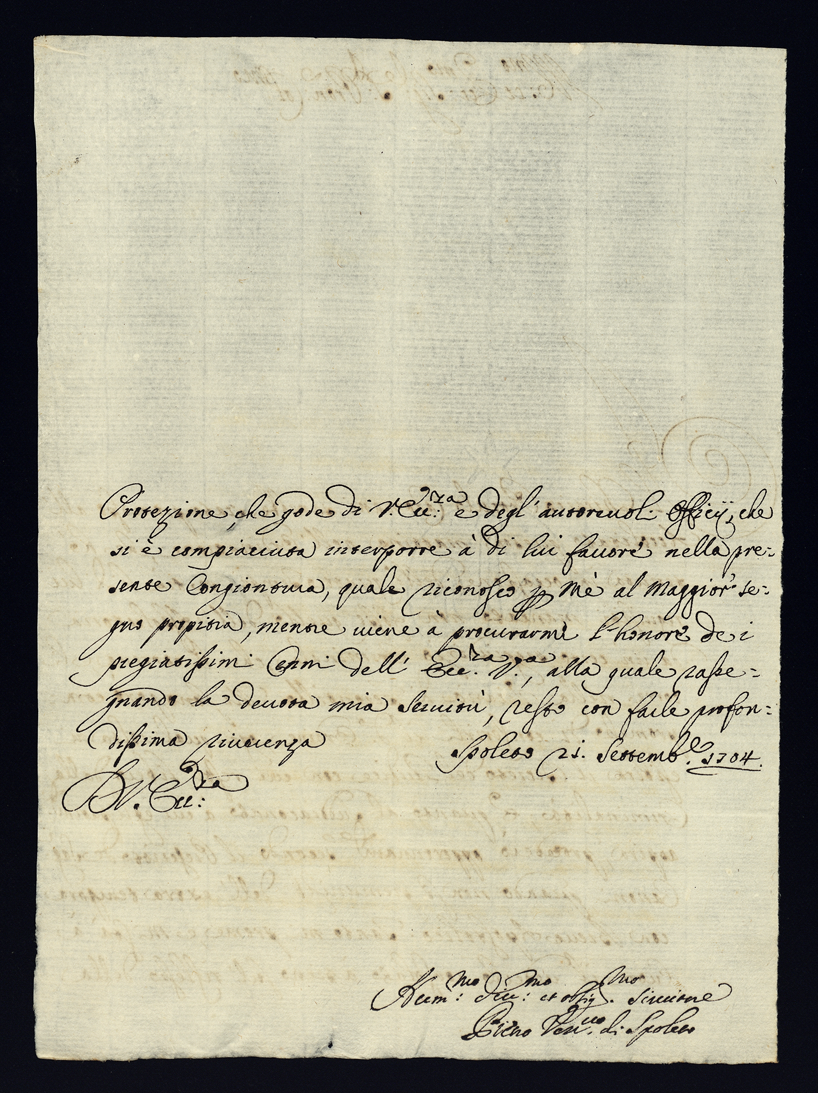 Protezione, che gode di V. Ecc.za e degl' autorevol. Officij, che
si è compiaciuta interporre à di lui favore nella pre=
sente Congiontura, quale riconosco p Mè al Maggior se=
gno propitia, mentre viene à procurarmi l'honore de i
pregiatissimi Cenni dell' Ecc.za V.a, alla quale rasse=
gnando la devota mia Servitù, resto con farle profon=
dissima riverenza Spoleto 21. Settemb.e 1704.
D V. Ecc:za
Hum:mo Div:mo et obblig.mo Servitore
Pietro Vesc.vo di Spoleto